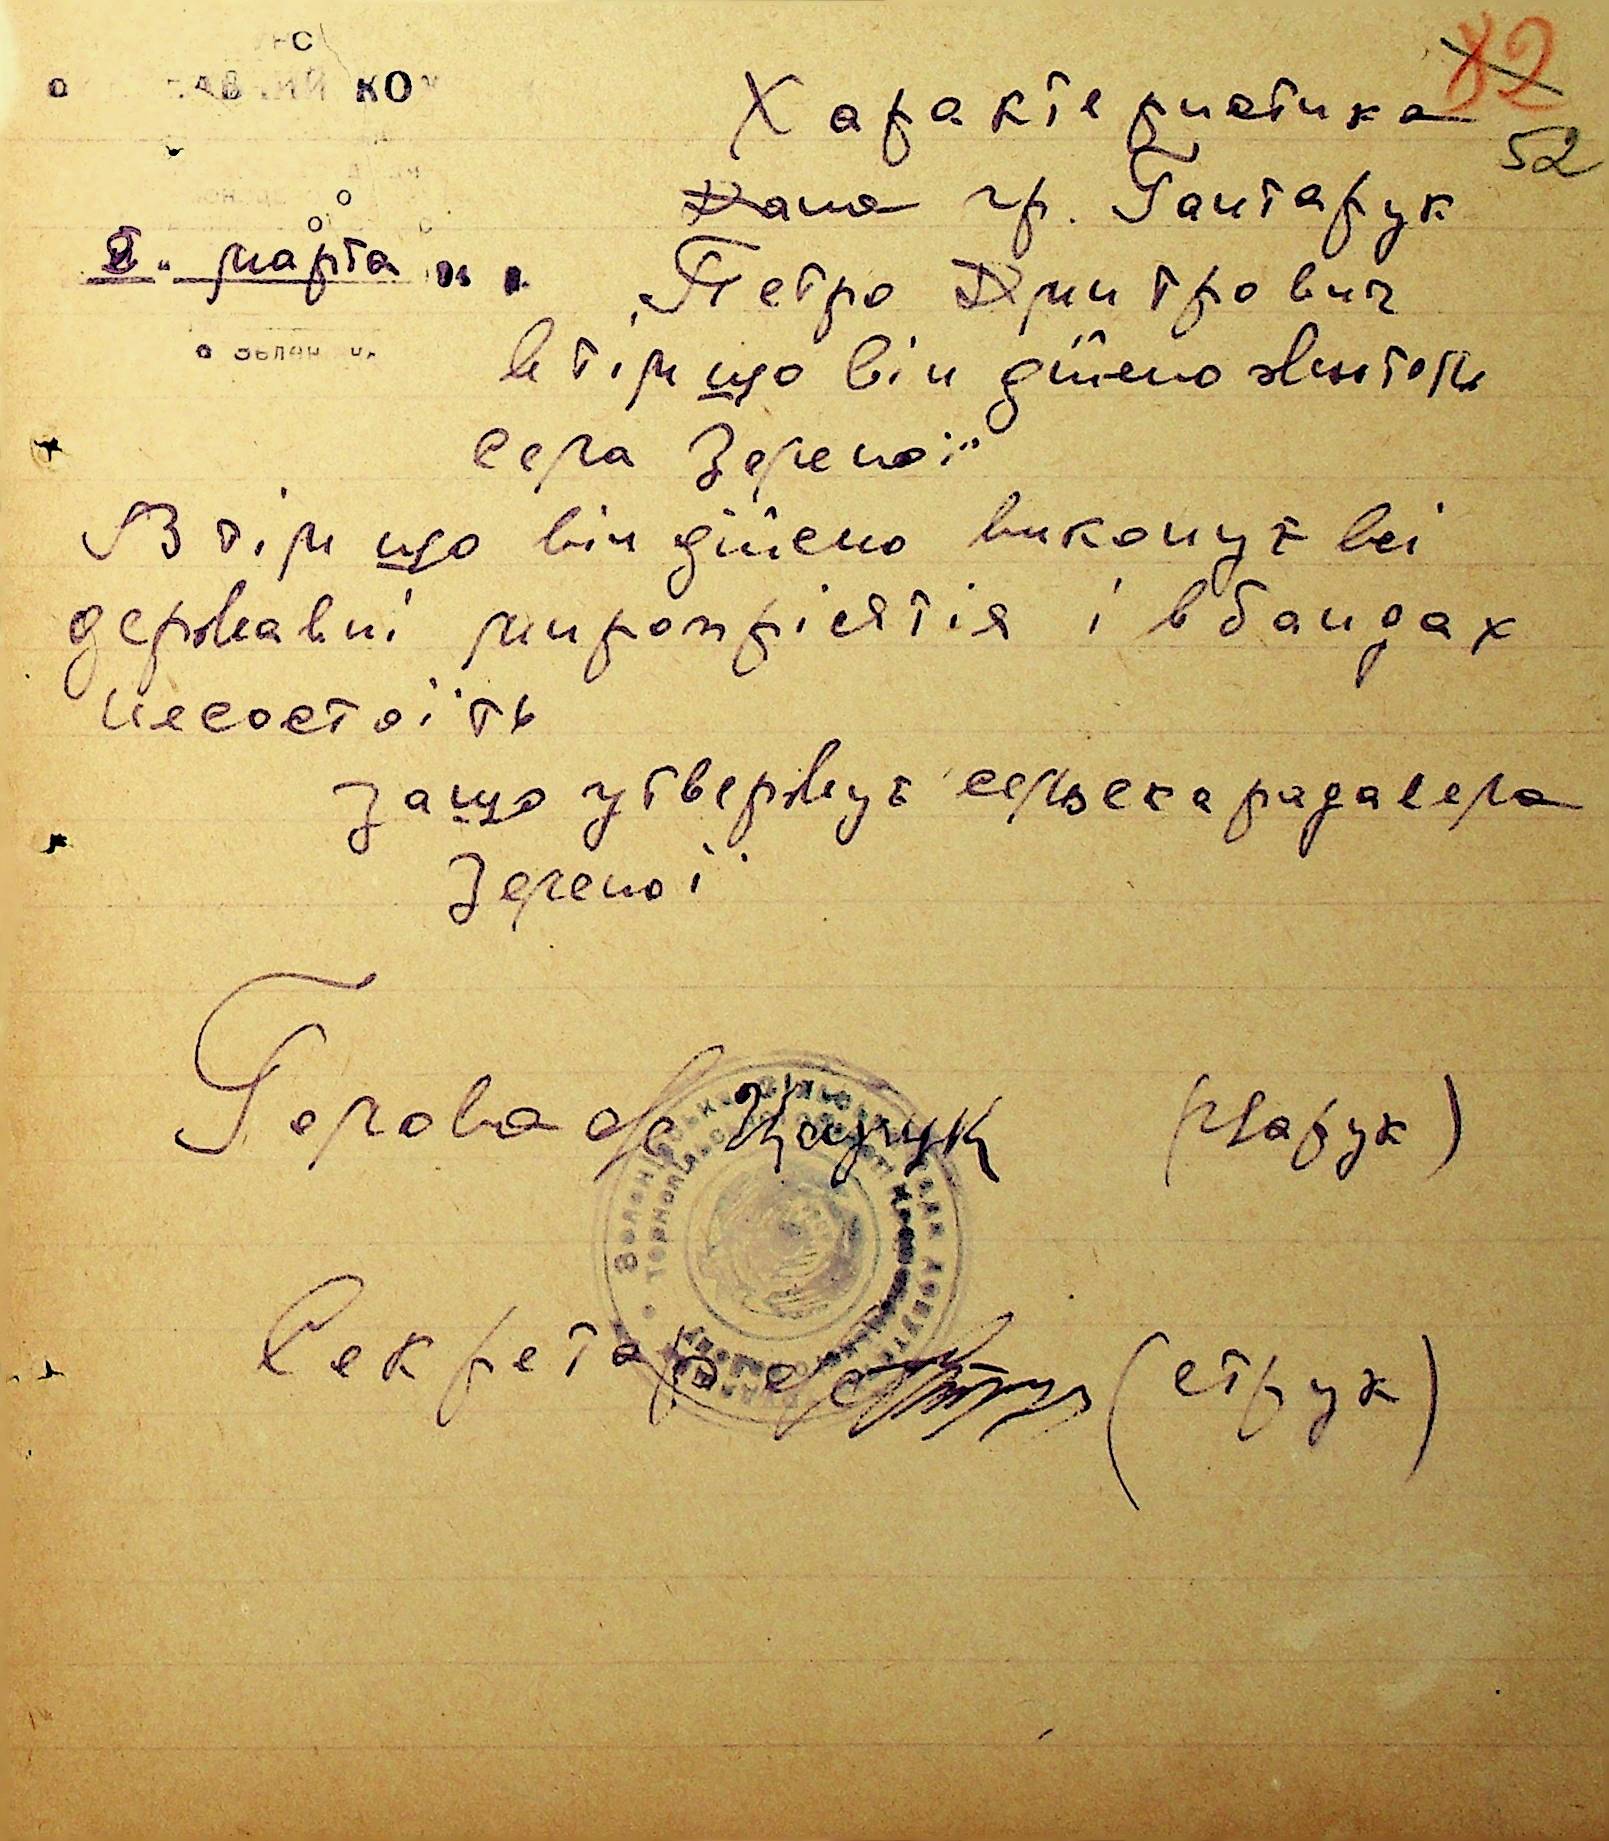 82
52
Характеристика
Дана гр. Гонтарук
Петро Дмитрович
в тім що він дійсно житель
села Зеленої
В тім що він дійсно виконує всі
державні мироприєтія і в бандах
несостоїть
2. марта
защо утвержує сельска рада села
Зеленої
Голова с/с Царук (Царук)
Секретар с/с (струк)